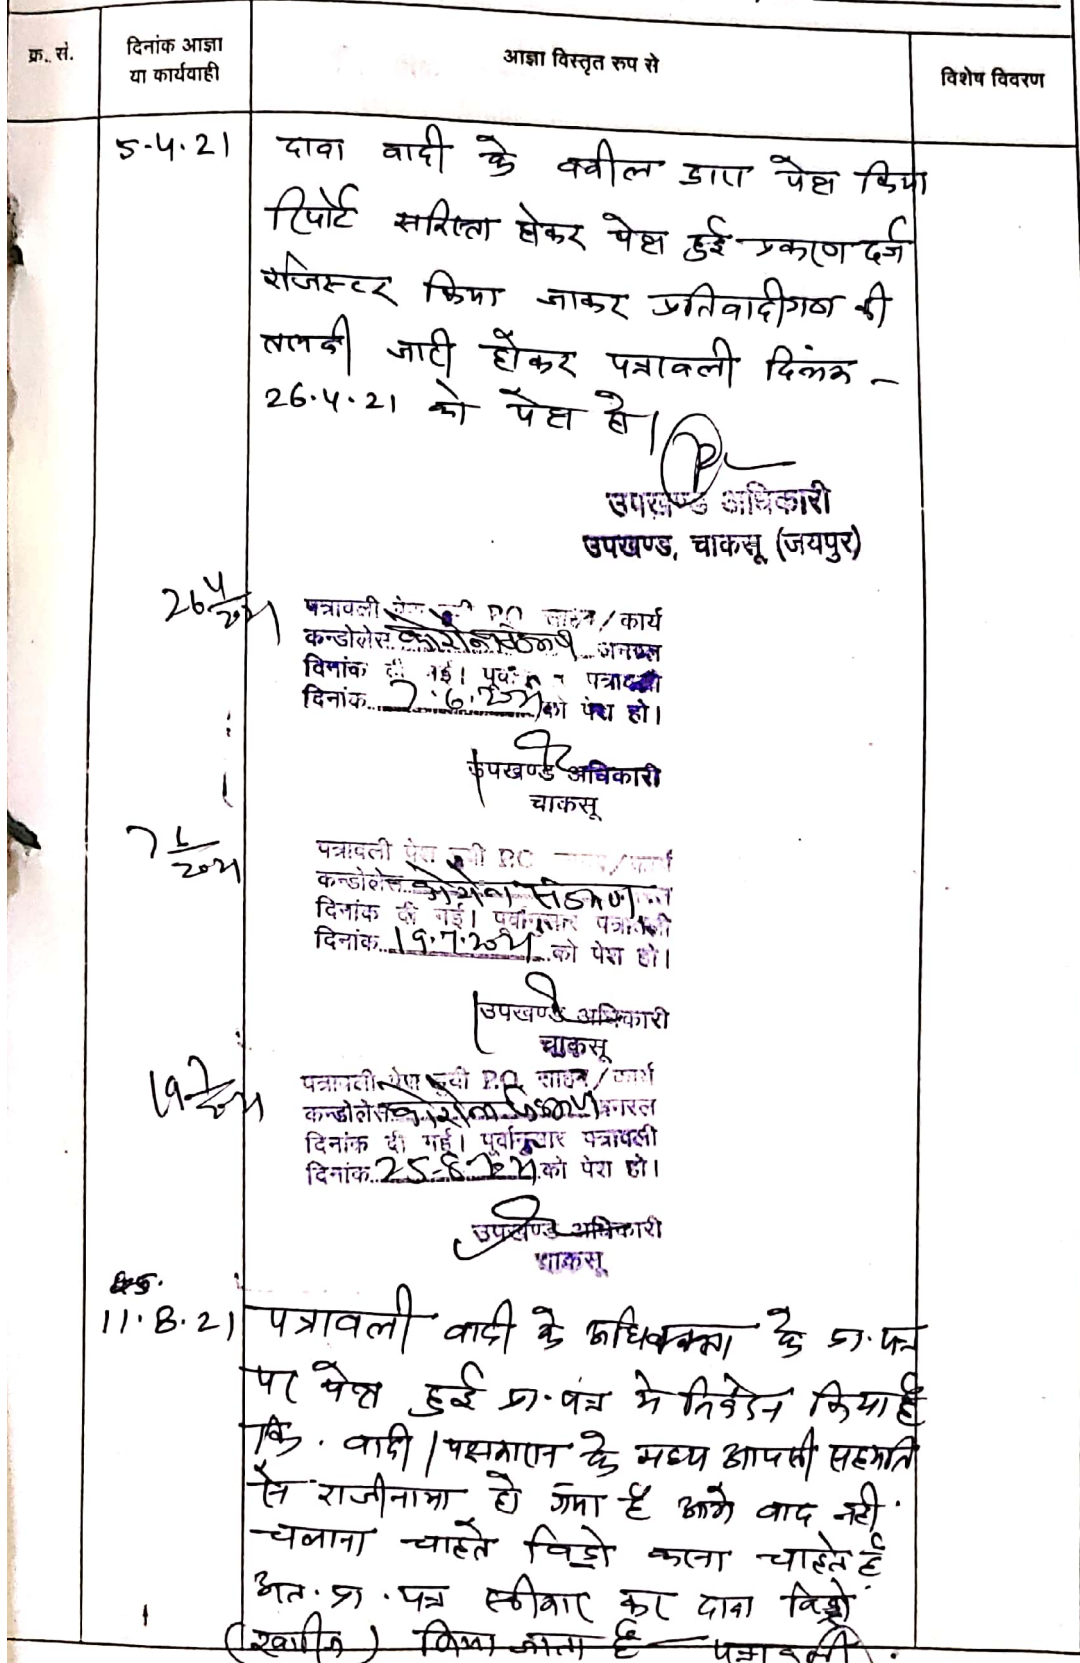 क्र. सं.
दिनांक आज्ञा
या कार्यवाही
आज्ञा विस्तृत रुप से
विशेष विवरण
5-4-21
दावा वादी के वकील द्वारा पेश किया
रिपोर्ट सरिश्ता होकर पेश हुई प्रकरण दर्ज
रजिस्टर किया जाकर प्रतिवादीगण की
तलबी जारी होकर पत्रावली दिनांक -
26.4.21 को पेश हो।
उपखण्ड अधिकारी
उपखण्ड, चाकसू (जयपुर)
26 4/2021
पत्रावली पेश हुयी P.O. साहब/कार्य
कन्डोलेंस कोरोना संक्रमण
दिनांक दी गई। पूर्वानुसार पत्रावली
दिनांक 7.6.2021 को पेश हो।
उपखण्ड अधिकारी
चाकसू
7 6/2021
पत्रावली पेश हुयी P.O. /कार्य
कन्डोलेंस कोरोना संक्रमण
दिनांक दी गई। पूर्वानुसार पत्रावली
दिनांक 19.7.2021 को पेश हो।
उपखण्ड अधिकारी
चाकसू
19 7/2021
पत्रावली पेश हुयी P.O. साहब/कार्य
कन्डोलेंस कोरोना संक्रमण
दिनांक दी गई। पूर्वानुसार पत्रावली
दिनांक 25-8-2021 को पेश हो।
उपखण्ड अधिकारी
चाकसू
11.8.21
पत्रावली वादी के अधिवक्ता के प्रा. पत्र
पर पेश हुई प्रा. पत्र मे निवेदन किया है
कि. वादी / पक्षकारान के मध्य आपसी सहमति
से राजीनामा हो गया है आगे वाद नही
चलाना चाहते विड्रो करना चाहते है
अत. प्रा. पत्र स्वीकार कर दावा विड्रो
(खारीज) किया जाता है — पत्रावली